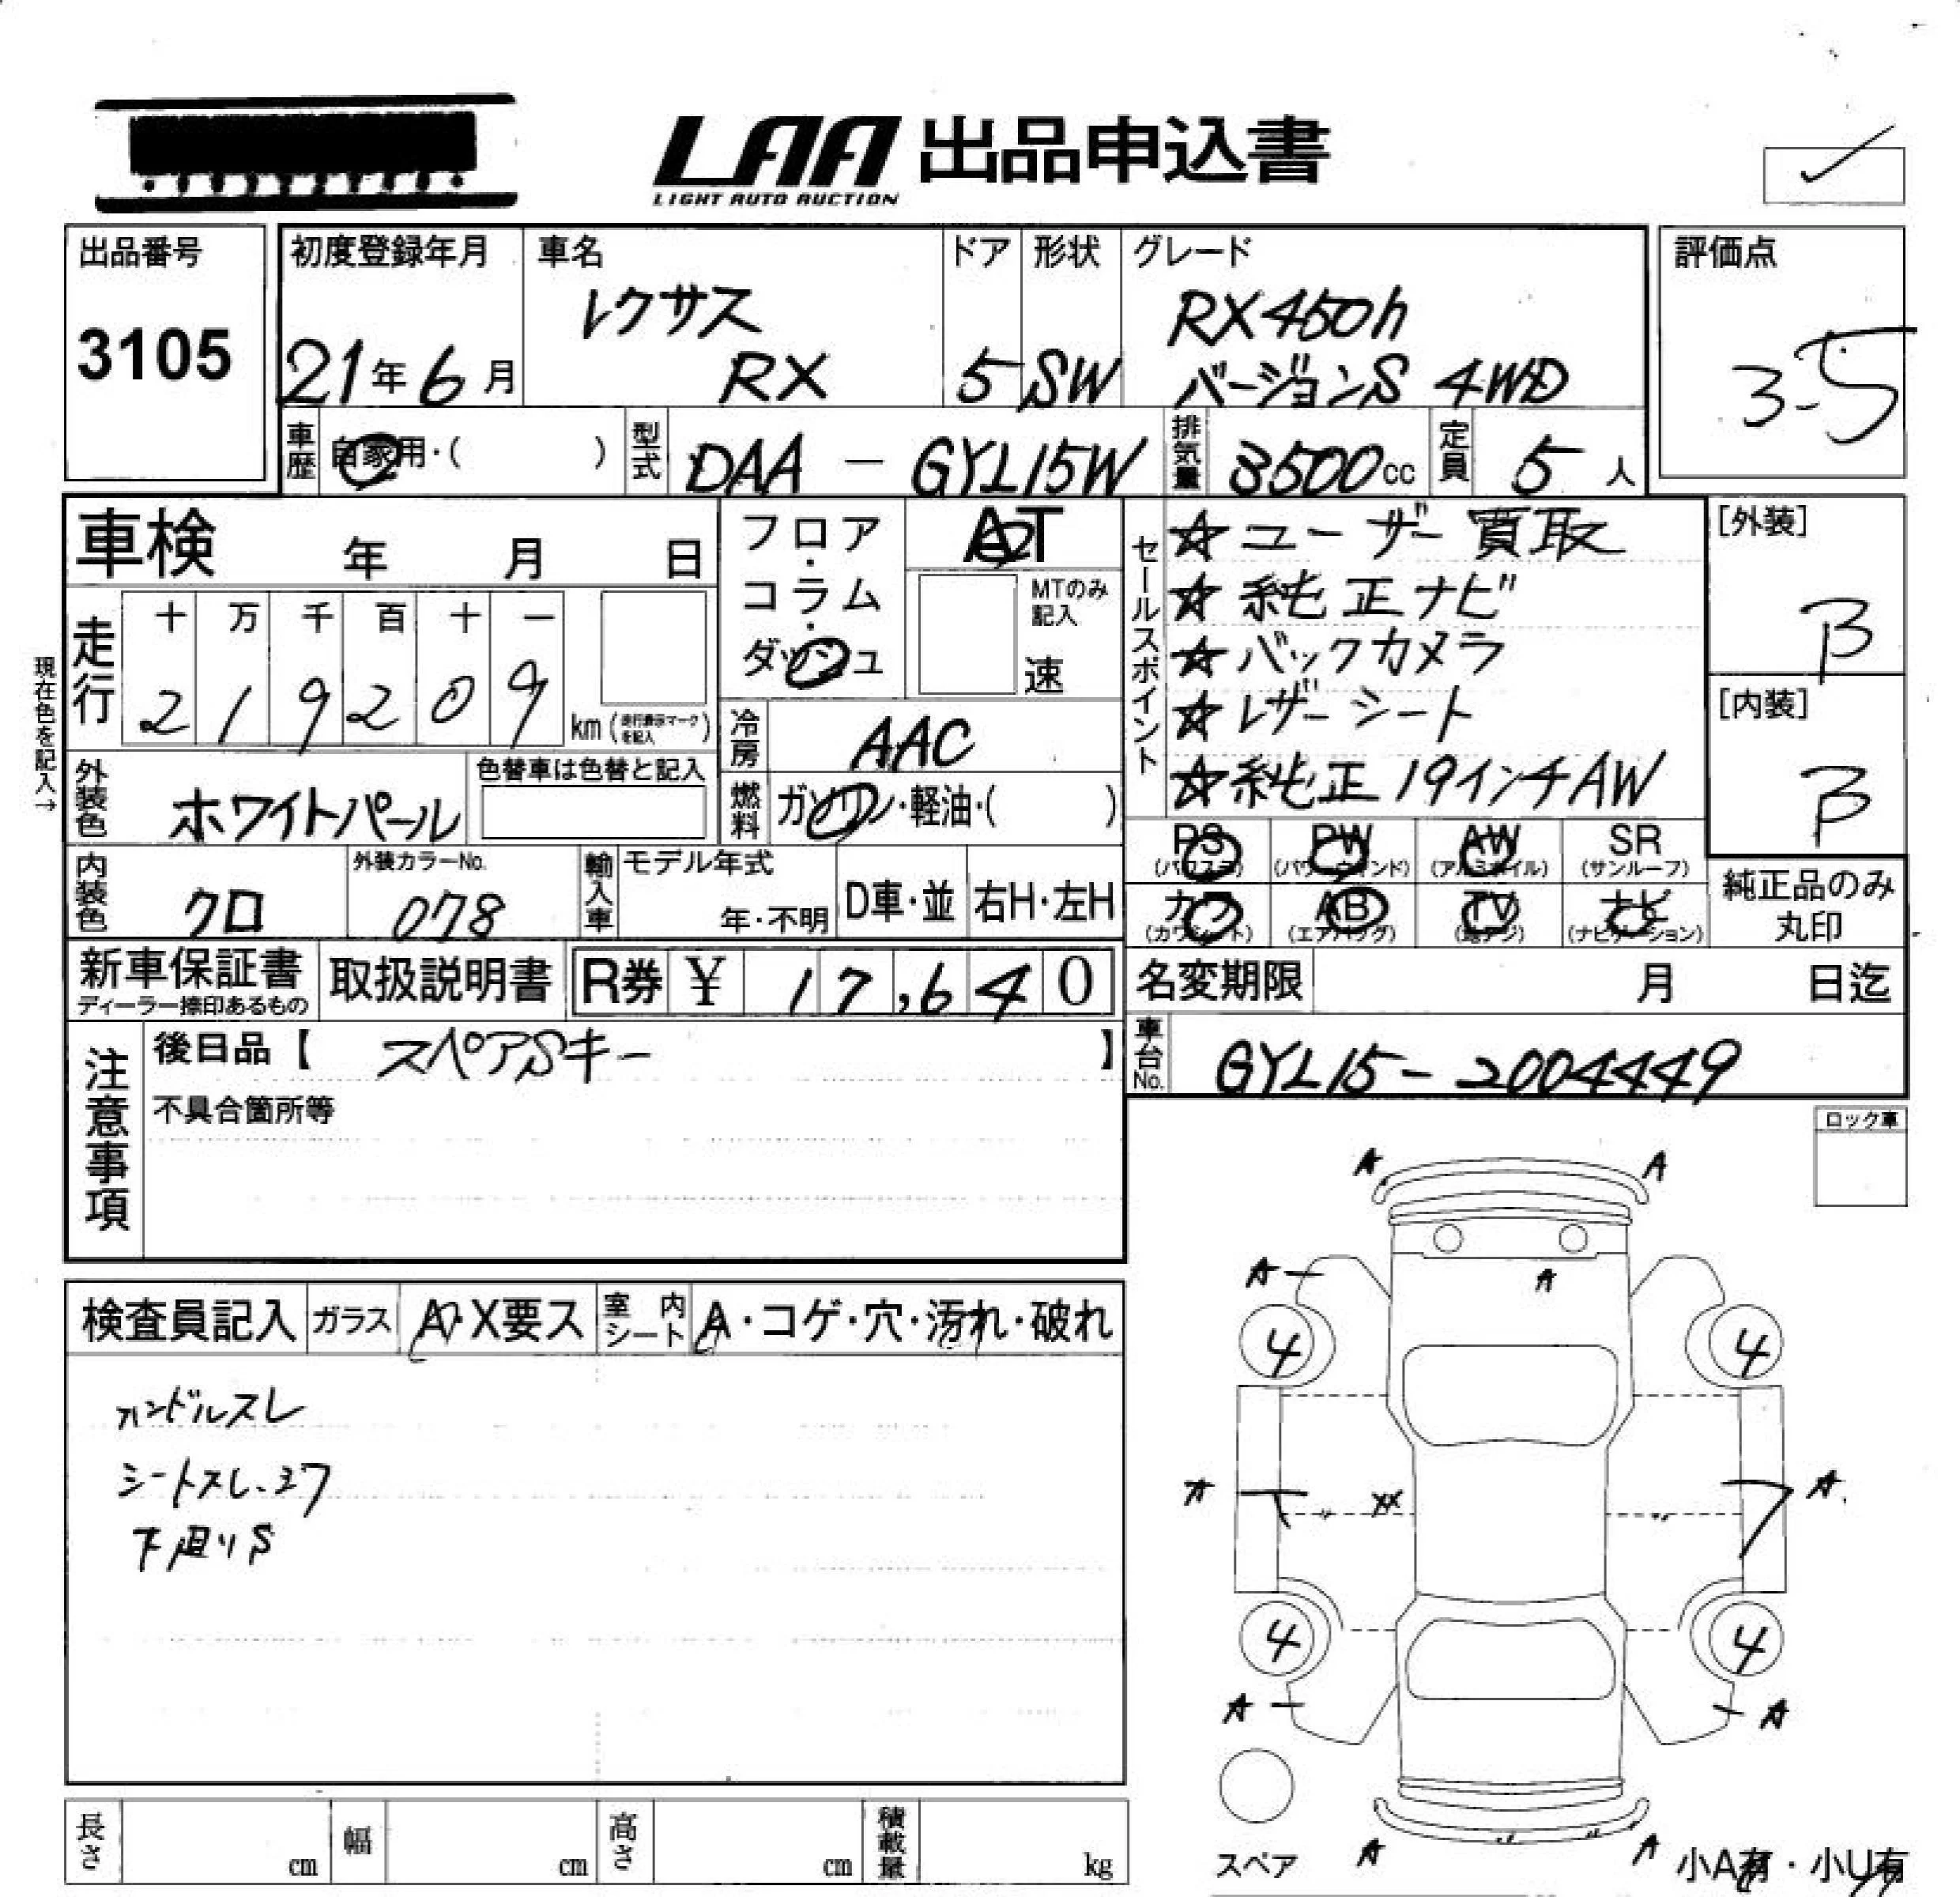 LAA 出品申込書
LIGHT AUTO AUCTION
出品番号
3105
初度登録年月
21年6月
車名
レクサス
RX
ドア
5
形状
SW
グレード
RX450h
バージョンS 4WD
評価点
3.5
車歴
自家用・( )
型式
DAA - GYL15W
排気量
3500cc
定員
5人
車検 年 月 日
フロア・コラム・ダッシュ
AT
MTのみ記入
速
セールスポイント
☆ユーザー買取
☆純正ナビ
☆バックカメラ
☆レザーシート
☆純正19インチAW
[外装]
B
[内装]
B
現在色を記入→
走行
十 万 千 百 十 一
2 1 9 2 0 9
km (走行表示マークを記入)
冷房
AAC
燃料
ガソリン・軽油・( )
外装色
ホワイトパール
色替車は色替と記入
内装色
クロ
外装カラーNo.
078
輸入車
モデル年式
年・不明
D車・並
右H・左H
PS
(パワステ)
PW
(パワーウィンド)
AW
(アルミホイル)
SR
(サンルーフ)
カワ
(カワシート)
AB
(エアバッグ)
TV
(地デジ)
ナビ
(ナビゲーション)
純正品のみ
丸印
新車保証書
ディーラー捺印あるもの
取扱説明書
R券 ¥ 17,640
名変期限 月 日迄
注意事項
後日品【 スペアSキー 】
不具合箇所等
車台No.
GYL15-2004449
ロック車
検査員記入
ガラス
A・X要ス
室内シート
A・コゲ・穴・汚れ・破れ
ハンドルスレ
シートスレ、シワ
下廻りS
A A
A A
4 4
A XX A
4 4
A A
A A
スペア
小A有・小U有
長さ cm
幅 cm
高さ cm
積載量 kg